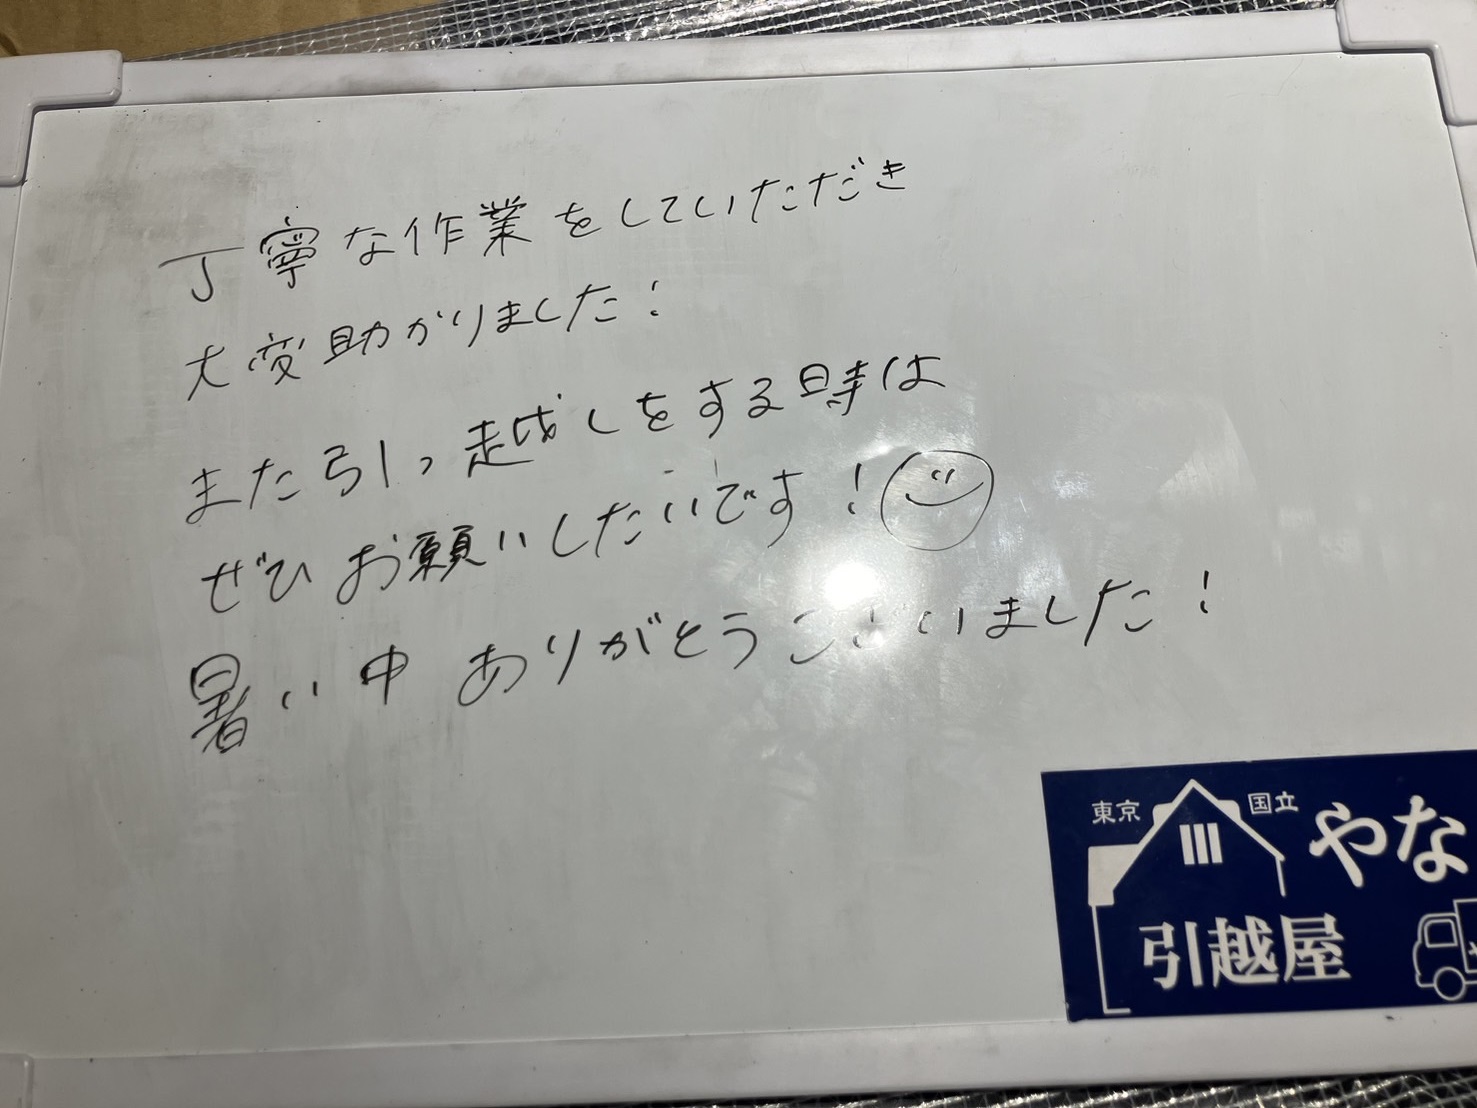 丁寧な作業をしていただき
大変助かりました!
また引っ越しをする時は
ぜひお願いしたいです!
暑い中 ありがとうございました!
東京 国立 やな
引越屋